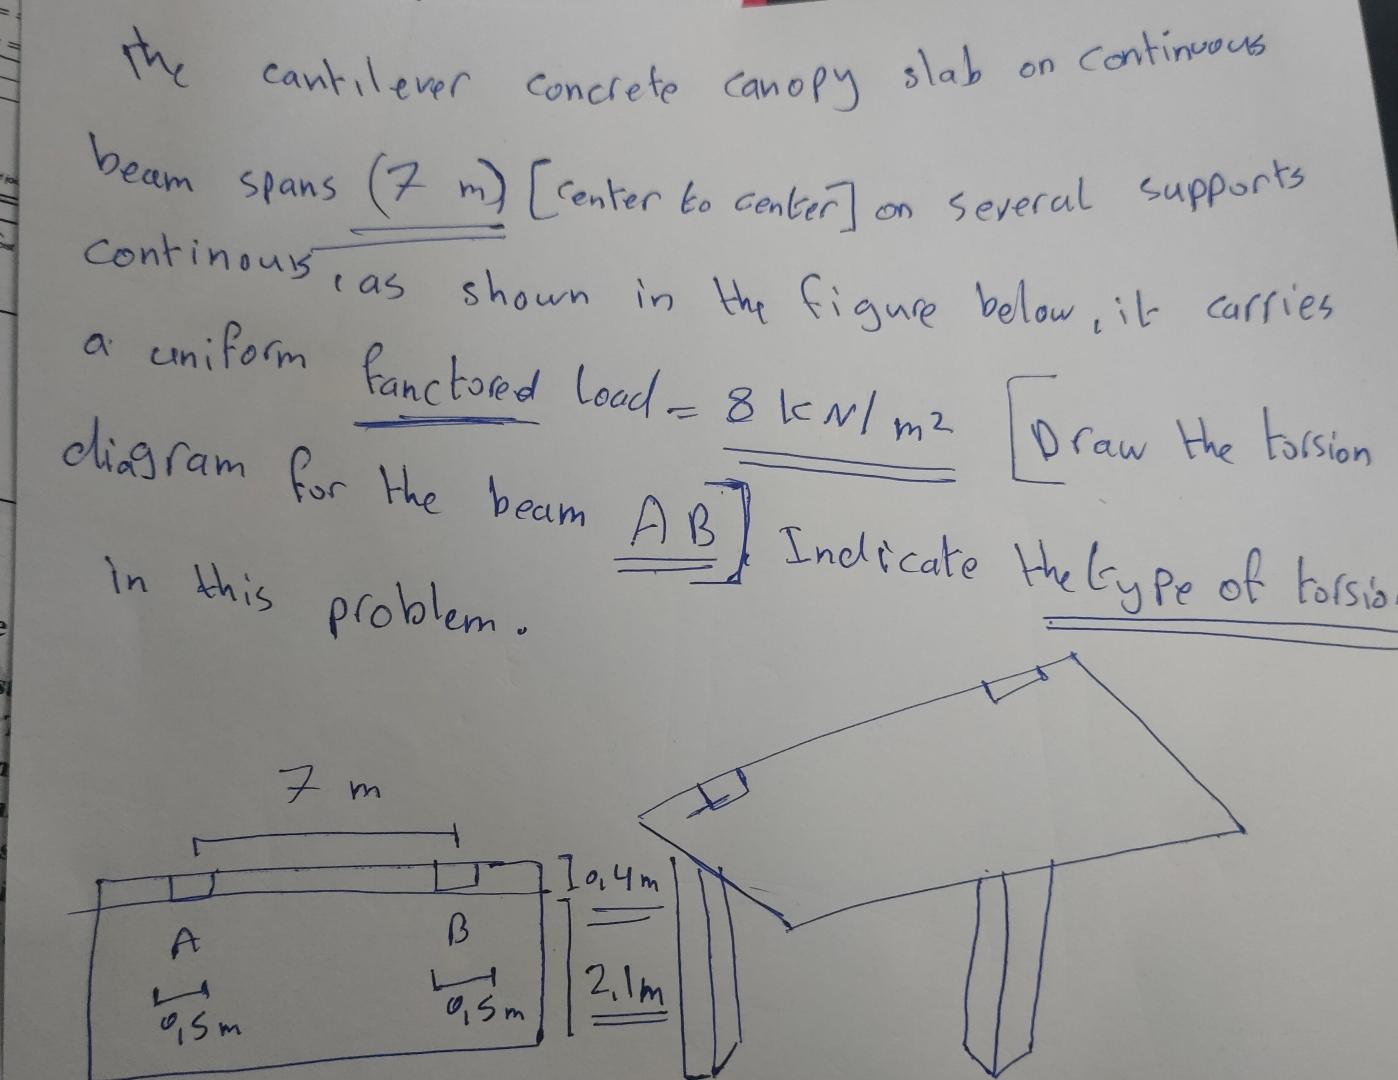 the cantilever concrete canopy slab on continuous
beam spans (7 m) [center to center] on several supports
continous, as shown in the figure below, it carries
a uniform fanctored load = 8 kN/m2 [Draw the torsion
diagram for the beam AB] Indicate the type of torsio
in this problem.
7 m
0,4m
A
B
2,1m
0,5m
0,5m